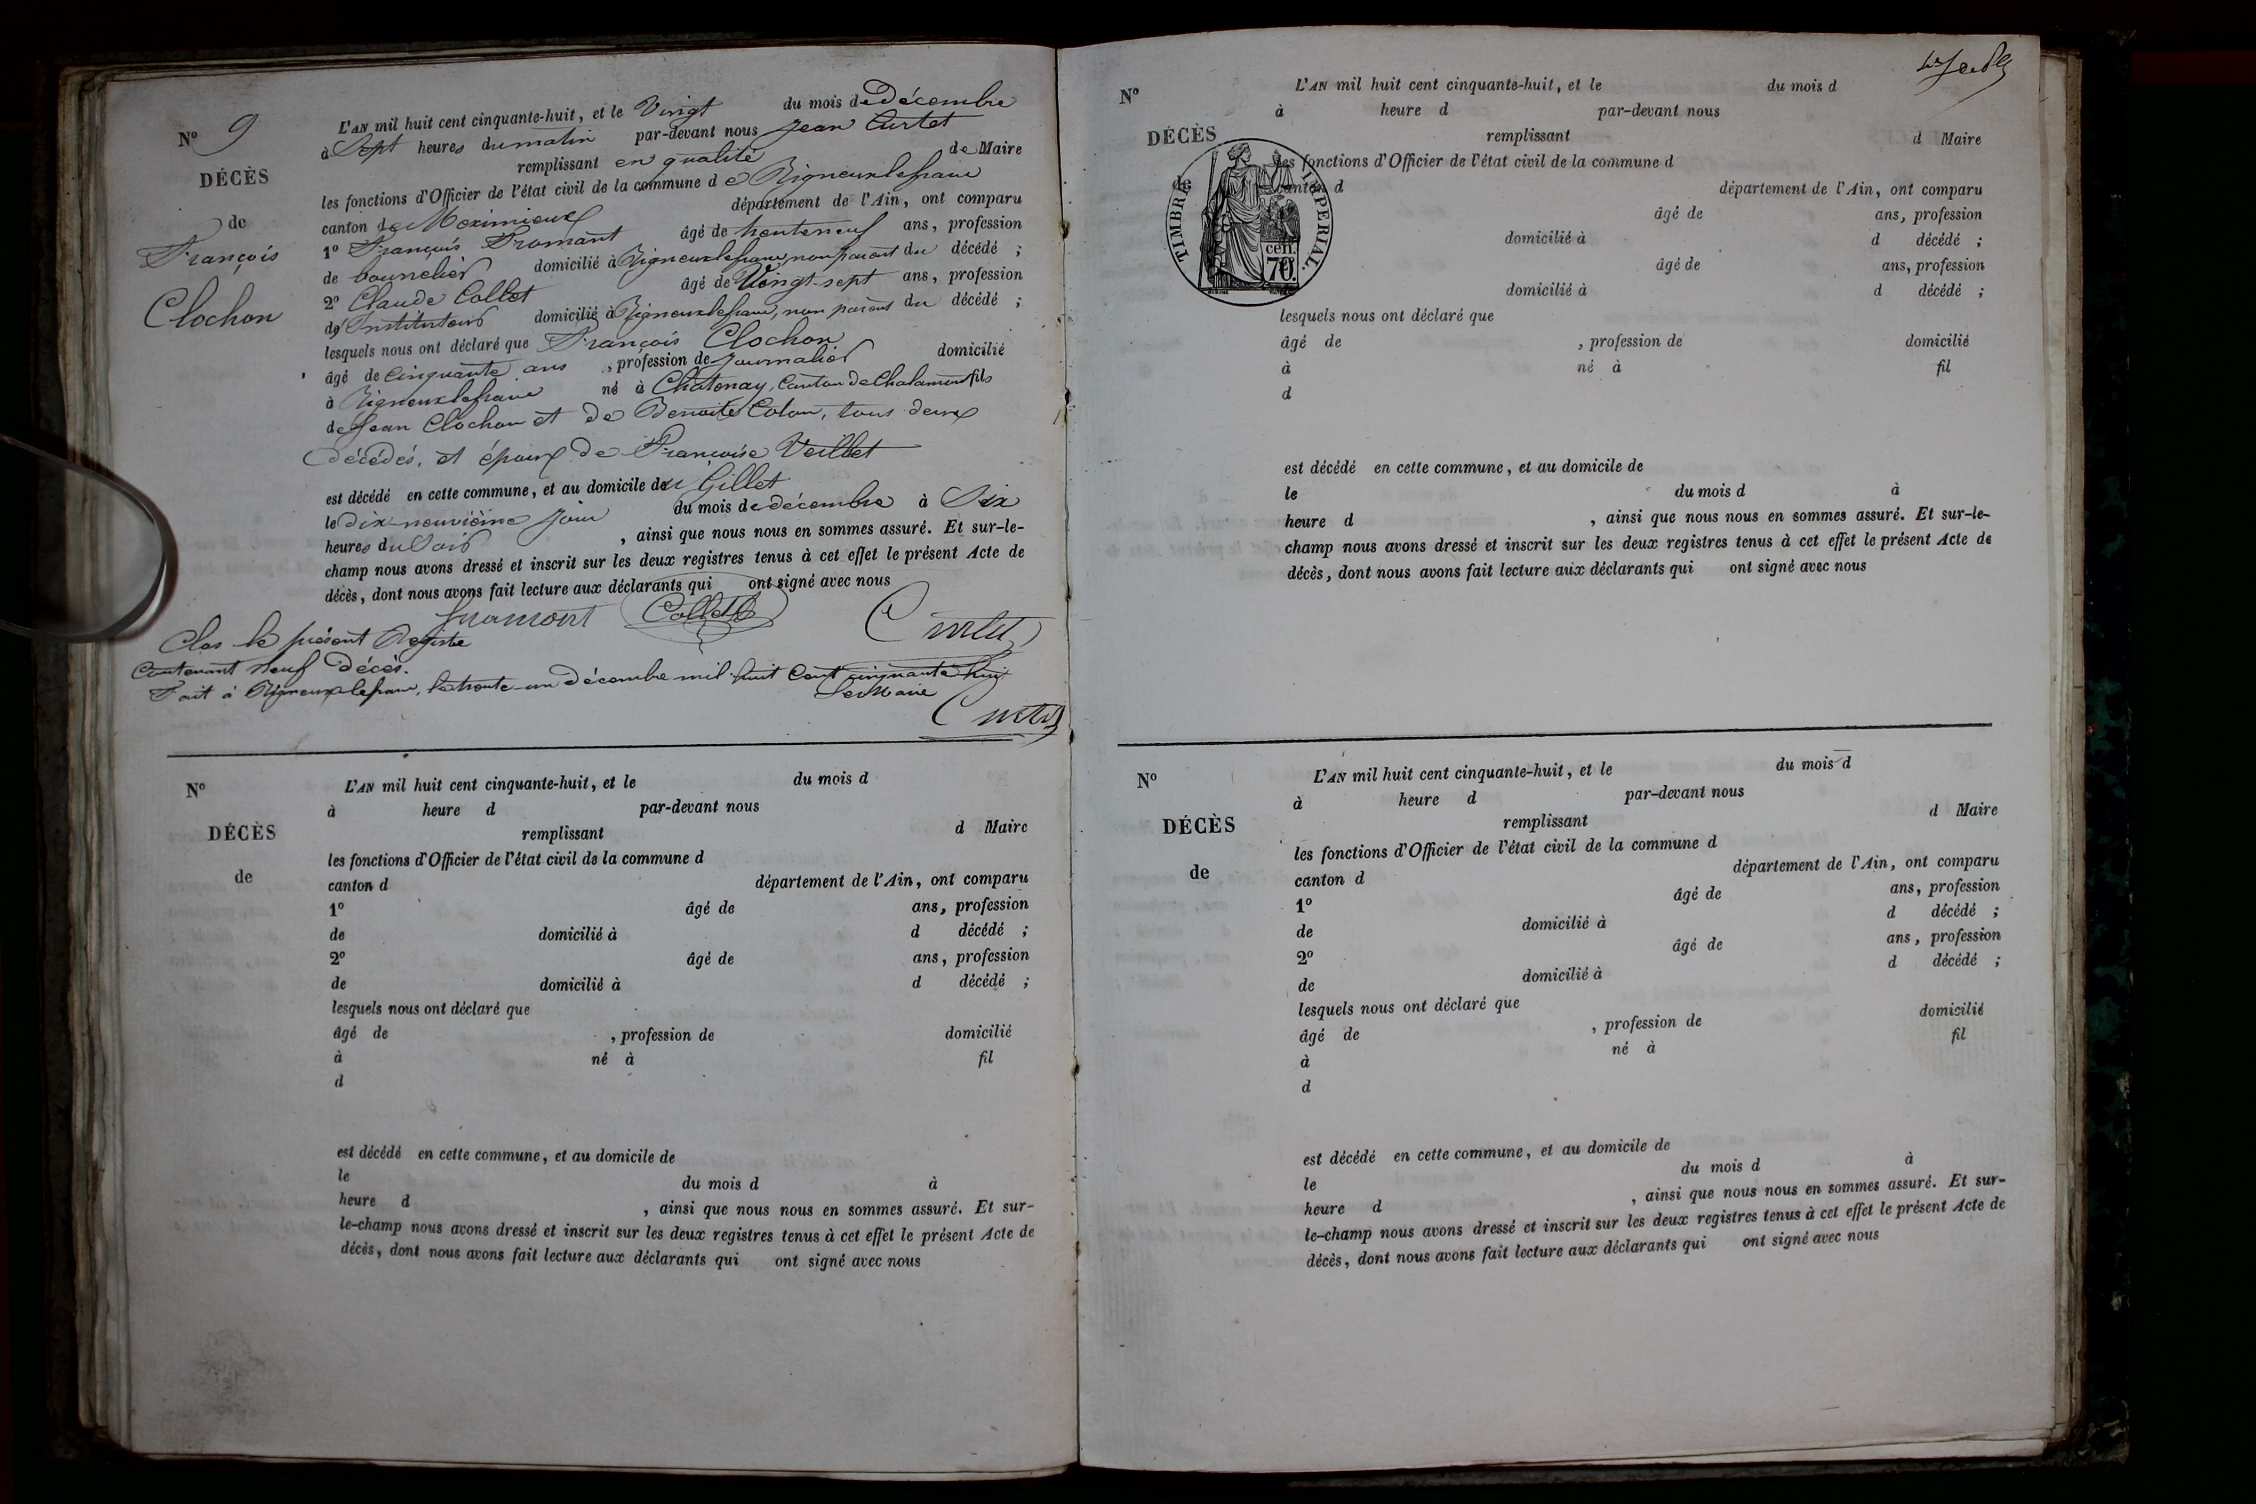 N° 9
DÉCÈS
de
François
Clochon
L'AN mil huit cent cinquante-huit, et le Vingt du mois de Décembre
à Sept heures du matin par-devant nous Jean Curtet
remplissant en qualité de Maire
les fonctions d'Officier de l'état civil de la commune de Rigneuxlefranc
canton de Meximieux département de l'Ain, ont comparu
1° François Fromont âgé de trenteneuf ans, profession
de domicilié à Rigneuxlefranc, non parent du décédé ;
2° Claude Collet âgé de Vingt-sept ans, profession
de Instituteur domicilié à Rigneuxlefranc, non parent du décédé ;
lesquels nous ont déclaré que François Clochon
âgé de Cinquante ans, profession de Journalier domicilié
à Rigneuxlefranc né à Chatenay, Canton de Chalamont fils
de Jean Clochon et de Benoite Colon, tous deux
décédés, et époux de Françoise Veillet
est décédé en cette commune, et au domicile de Gillet
le dix-neuvième jour du mois de décembre à Six
heures du Soir, ainsi que nous nous en sommes assuré. Et sur-le-
champ nous avons dressé et inscrit sur les deux registres tenus à cet effet le présent Acte de
décès, dont nous avons fait lecture aux déclarants qui ont signé avec nous
Fromont Collet Curtet
Clos le présent Registre
Contenant neuf décès.
Fait à Rigneuxlefranc, le trente-un Décembre mil huit Cent cinquante huit
Le Maire
Curtet
N°
DÉCÈS
de
L'AN mil huit cent cinquante-huit, et le du mois d
à heure d par-devant nous
remplissant d Maire
les fonctions d'Officier de l'état civil de la commune d
canton d département de l'Ain, ont comparu
1° âgé de ans, profession
de domicilié à d décédé ;
2° âgé de ans, profession
de domicilié à d décédé ;
lesquels nous ont déclaré que
âgé de , profession de domicilié
à né à fil
d
est décédé en cette commune, et au domicile de
le du mois d à
heure d , ainsi que nous nous en sommes assuré. Et sur-
le-champ nous avons dressé et inscrit sur les deux registres tenus à cet effet le présent Acte de
décès, dont nous avons fait lecture aux déclarants qui ont signé avec nous
N°
DÉCÈS
de
TIMBRE IMPERIAL.
70 cen.
L'AN mil huit cent cinquante-huit, et le du mois d
à heure d par-devant nous
remplissant d Maire
les fonctions d'Officier de l'état civil de la commune d
canton d département de l'Ain, ont comparu
âgé de ans, profession
domicilié à d décédé ;
âgé de ans, profession
domicilié à d décédé ;
lesquels nous ont déclaré que
âgé de , profession de domicilié
à né à fil
d
est décédé en cette commune, et au domicile de
le du mois d à
heure d , ainsi que nous nous en sommes assuré. Et sur-le-
champ nous avons dressé et inscrit sur les deux registres tenus à cet effet le présent Acte de
décès, dont nous avons fait lecture aux déclarants qui ont signé avec nous
N°
DÉCÈS
de
L'AN mil huit cent cinquante-huit, et le du mois d
à heure d par-devant nous
remplissant d Maire
les fonctions d'Officier de l'état civil de la commune d
canton d département de l'Ain, ont comparu
1° âgé de ans, profession
de domicilié à d décédé ;
2° âgé de ans, profession
de domicilié à d décédé ;
lesquels nous ont déclaré que
âgé de , profession de domicilié
à né à fil
d
est décédé en cette commune, et au domicile de
le du mois d à
heure d , ainsi que nous nous en sommes assuré. Et sur-
le-champ nous avons dressé et inscrit sur les deux registres tenus à cet effet le présent Acte de
décès, dont nous avons fait lecture aux déclarants qui ont signé avec nous